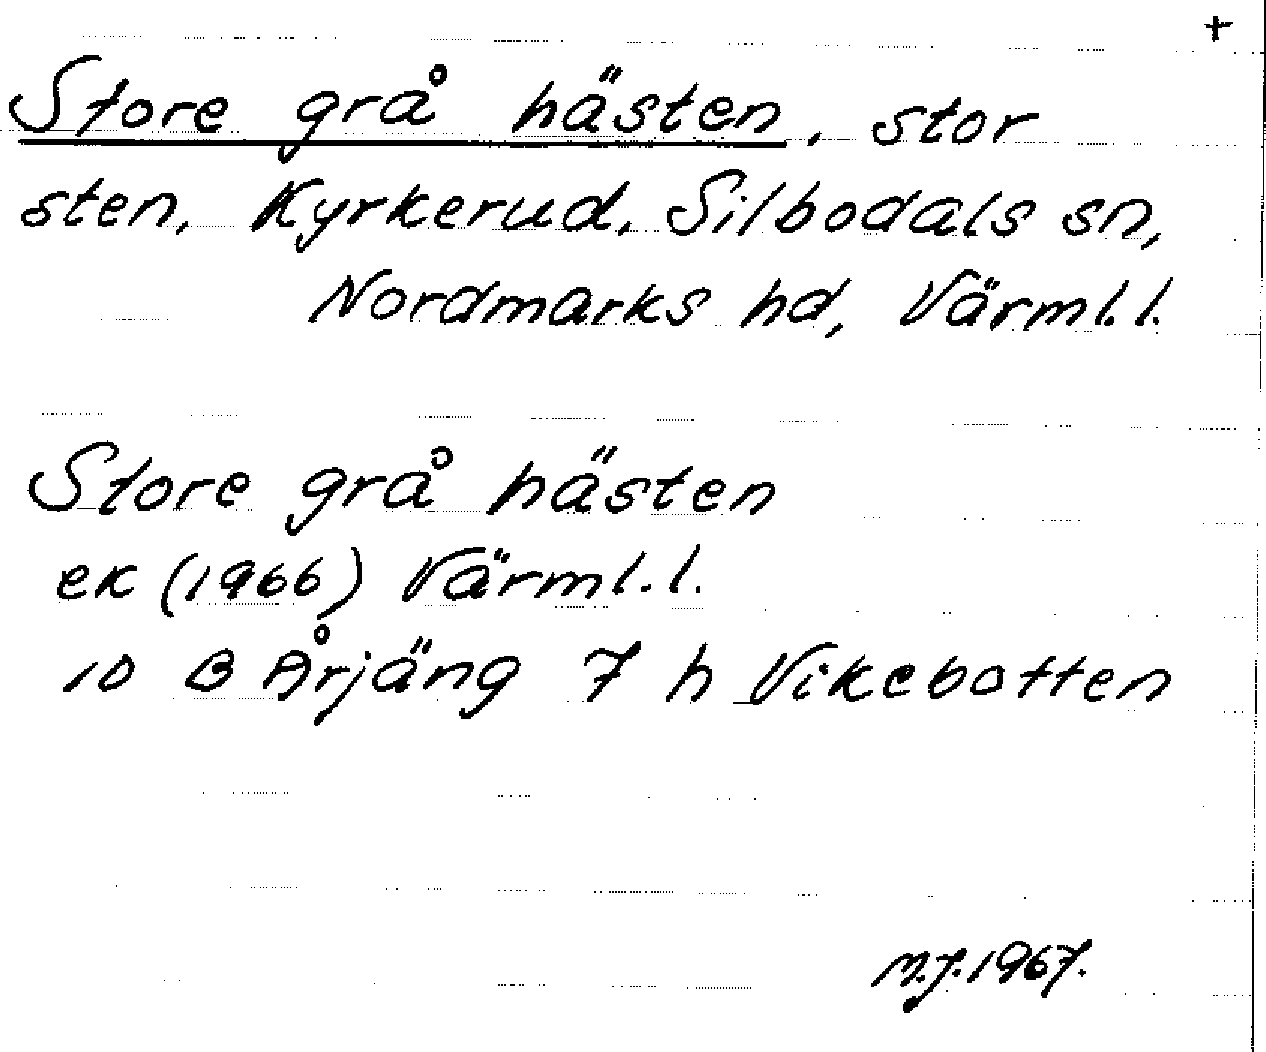 +
Store grå hästen, stor
sten, Kyrkerud, Silbodals sn,
Nordmarks hd, Värml. l.
Store grå hästen
ek (1966) Värml. l.
10 B Årjäng 7 h Vikebotten
M.J. 1967.